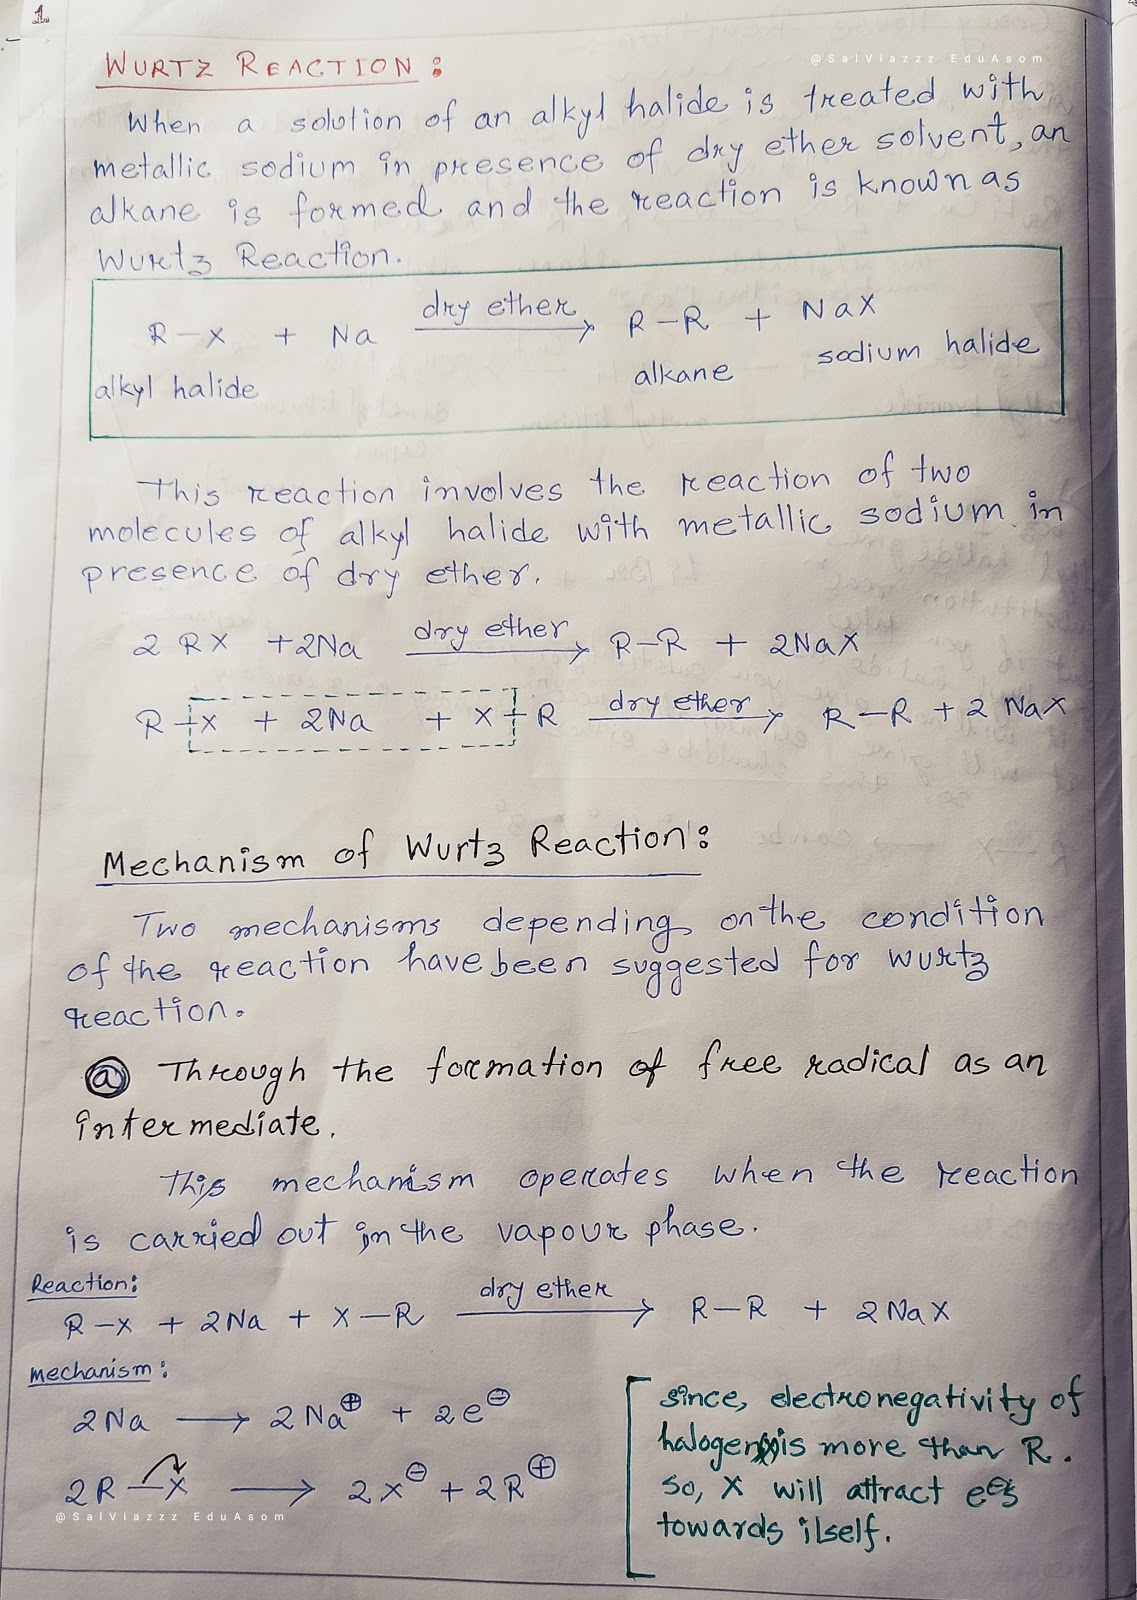 1.
@SalViazzz EduAsom
WURTZ REACTION:
When a solution of an alkyl halide is treated with
metallic sodium in presence of dry ether solvent, an
alkane is formed and the reaction is known as
Wurtz Reaction.
R-X + Na dry ether → R-R + NaX
alkyl halide alkane sodium halide
This reaction involves the reaction of two
molecules of alkyl halide with metallic sodium in
presence of dry ether.
2 RX + 2Na dry ether → R-R + 2NaX
R-X + 2Na + X-R dry ether → R-R + 2 NaX
Mechanism of Wurtz Reaction:
Two mechanisms depending on the condition
of the reaction have been suggested for wurtz
reaction.
ⓐ Through the formation of free radical as an
intermediate.
This mechanism operates when the reaction
is carried out in the vapour phase.
Reaction:
R-X + 2Na + X-R dry ether → R-R + 2NaX
mechanism:
2Na → 2Na⊕ + 2e⊖
2R-X → 2X⊖ + 2R⊕
@SalViazzz EduAsom
since, electronegativity of
halogen(X) is more than R.
So, X will attract e⊖s
towards itself.